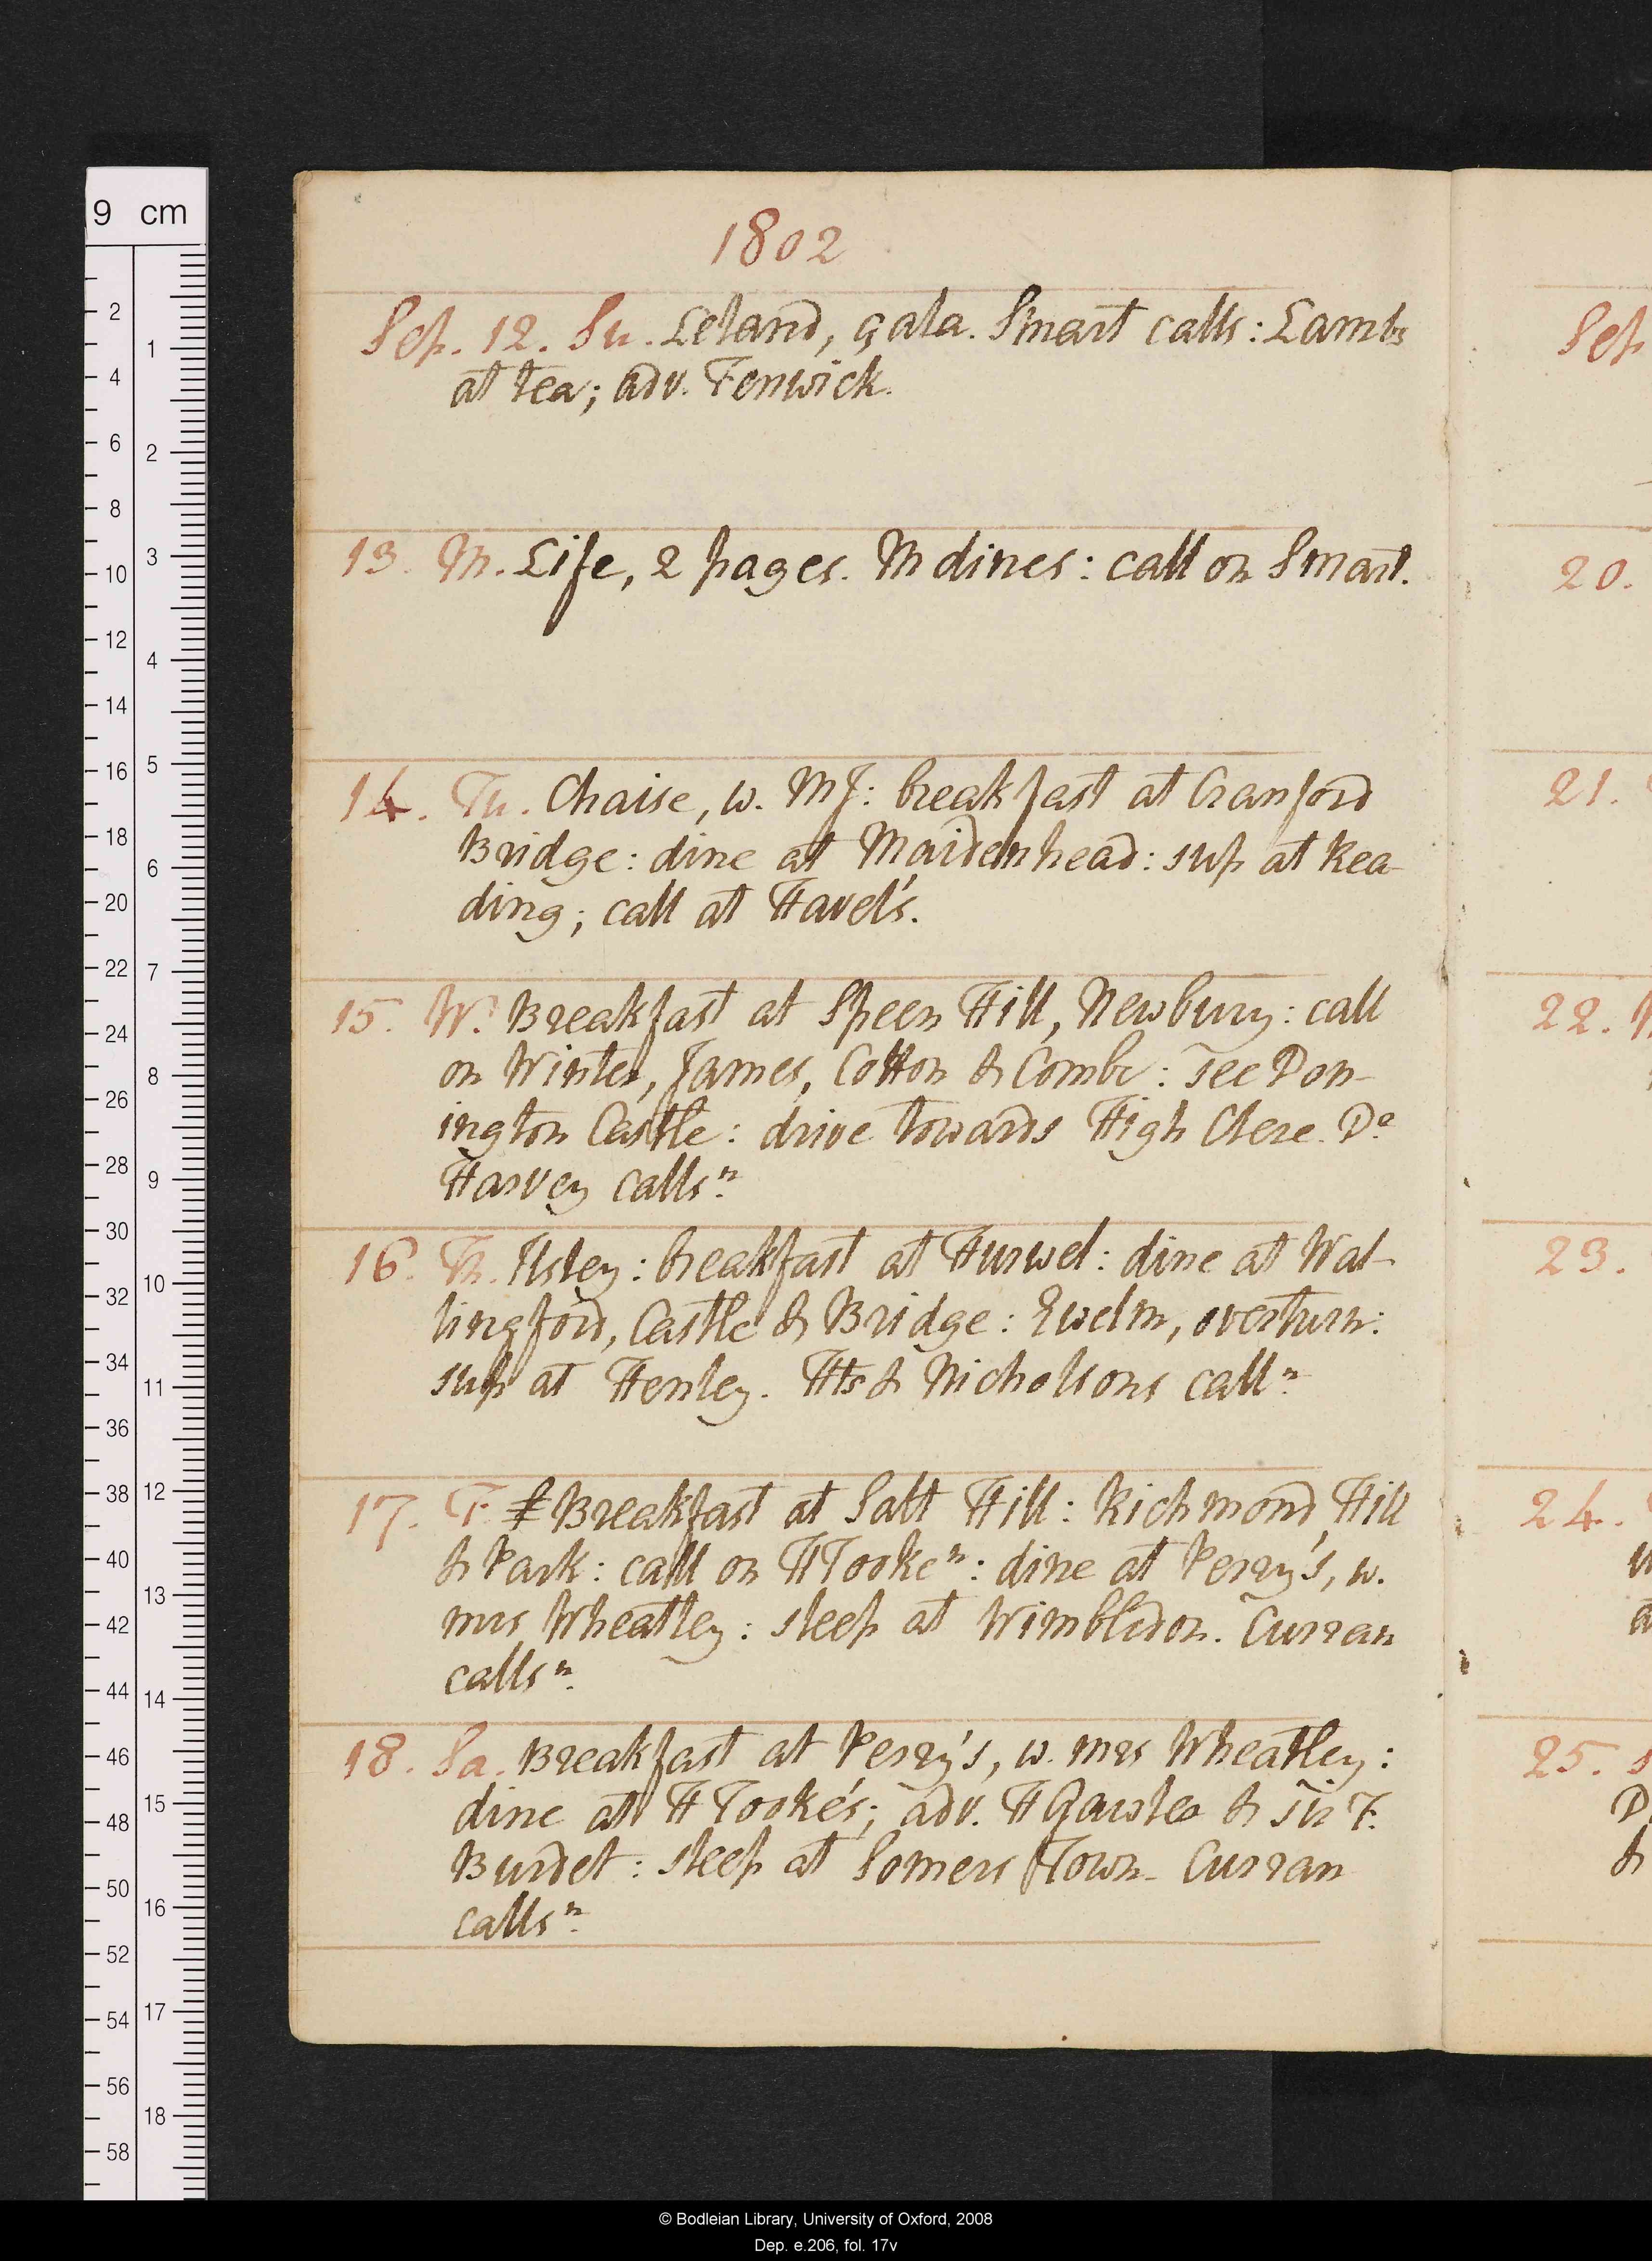 1802
Sep. 12. Su. Leland, çala. Smart calls: Lambs
at tea; adv. Fenwick.
13. M. Life, 2 pages. M dines: call on Smart.
14. Tu. Chaise, w. MJ: breakfast at Cranford
Bridge: dine at Maidenhead: sup at Rea-
ding; call at Havel's.
15. W. Breakfast at Speen Hill, Newbury: call
on Winter, James, Cotton & Combe: see Don-
ington Castle: drive towards High Clere. Dr
Harvey calls n.
16. Th. Ilsley: breakfast at Harwel: dine at Wal-
lingford, Castle & Bridge: Ewelm, overturn:
sup at Henley. Hts & Nicholsons call n.
17. F. Breakfast at Salt Hill: Richmond Hill
& Park: call on HTooke n: dine at Perry's, w.
mrs Wheatley: sleep at Wimbledon. Curran
calls n.
18. Sa. Breakfast at Perry's, w. mrs Wheatley:
dine at HTooke's; adv. H & sir F.
Burdet: sleep at Somers Town. Curran
calls n.
Sep
20.
21.
22.
23.
24.
25.
9 cm
2
4
6
8
10
12
14
16
18
20
22
24
26
28
30
32
34
36
38
40
42
44
46
48
50
52
54
56
58
1
2
3
4
5
6
7
8
9
10
11
12
13
14
15
16
17
18
© Bodleian Library, University of Oxford, 2008
Dep. e.206, fol. 17v